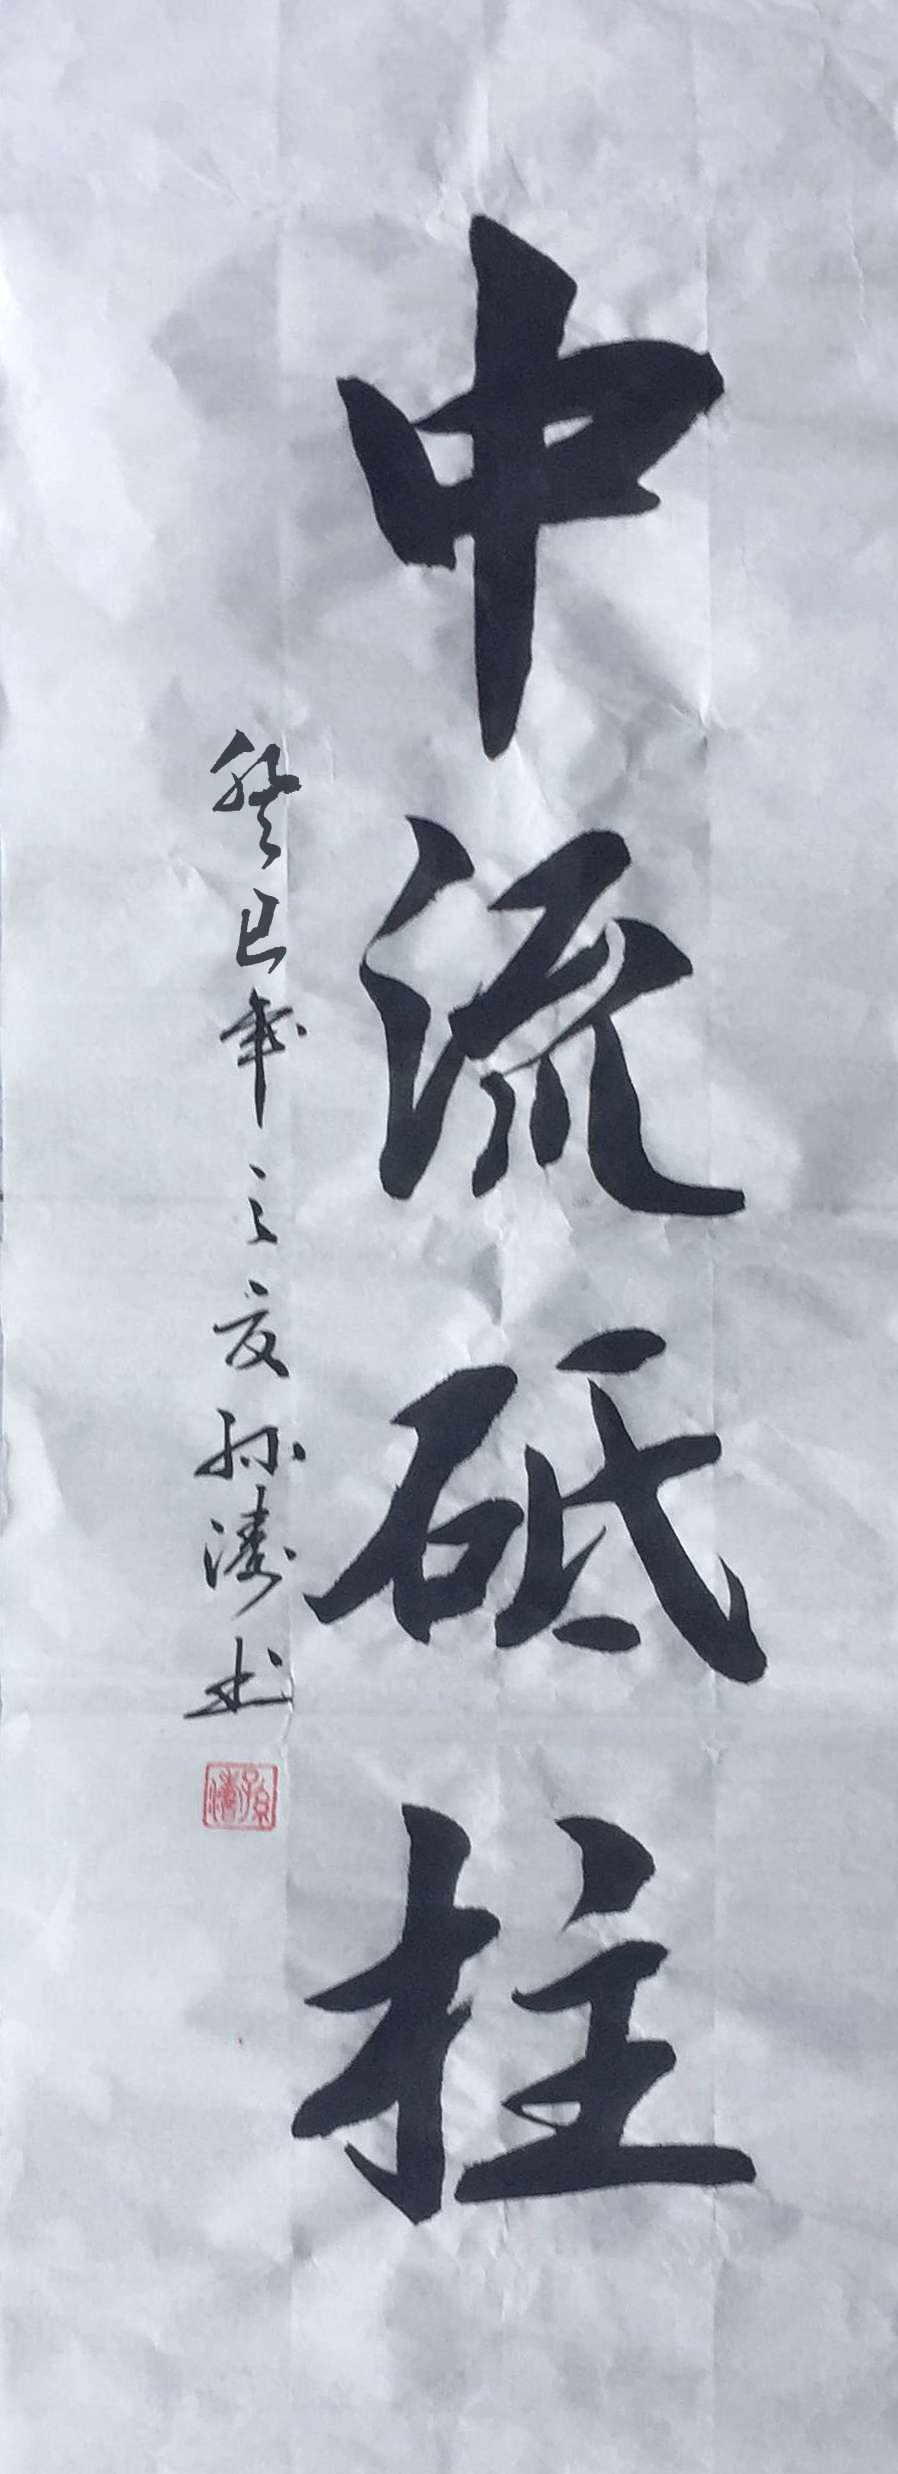 中流砥柱
癸巳年之夏孙涛书
孫濤